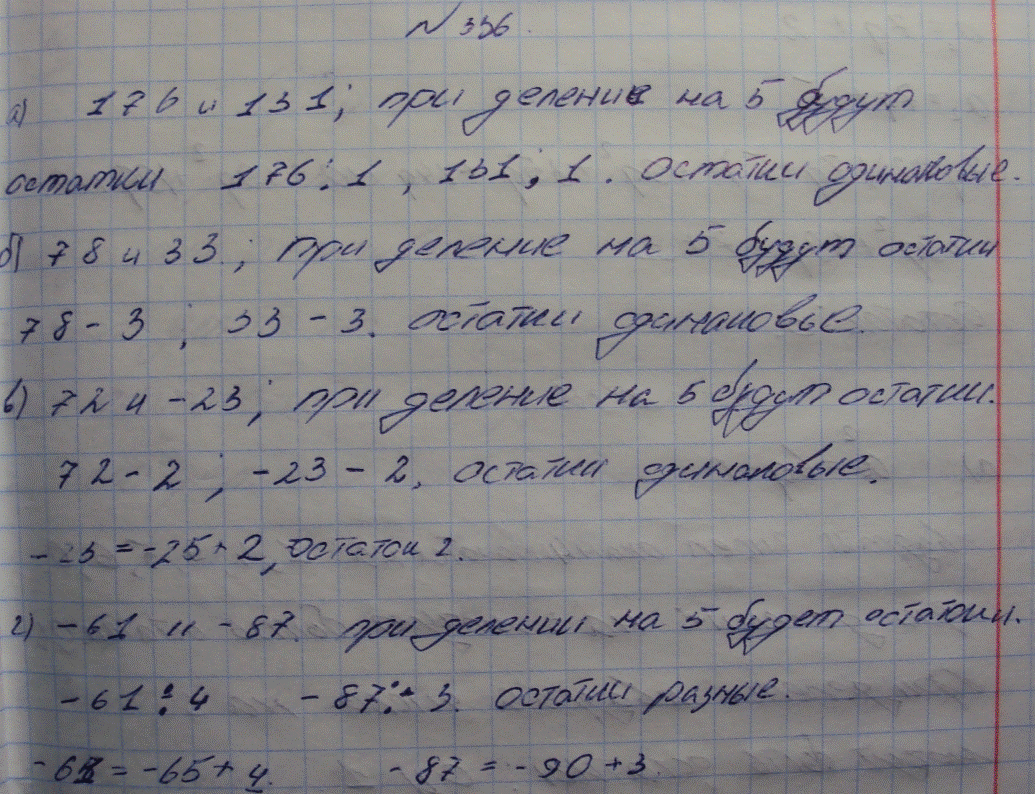 № 336.
а) 176 и 131; при деление на 5 будут
остатки 176 : 1 , 131 ; 1 . остатки одинаковые.
б) 78 и 33 ; при деление на 5 будут остатки
78 - 3 ; 33 - 3. остатки одинаковые.
в) 72 и -23; при деление на 5 будут остатки.
72 - 2 ; -23 - 2, остатки одинаковые.
-23 = -25 + 2, остаток 2.
г) -61 и -87. при делении на 5 будет остатки.
-61 : 4 -87 :- 3. остатки разные.
-61 = -65 + 4. -87 = -90 + 3.